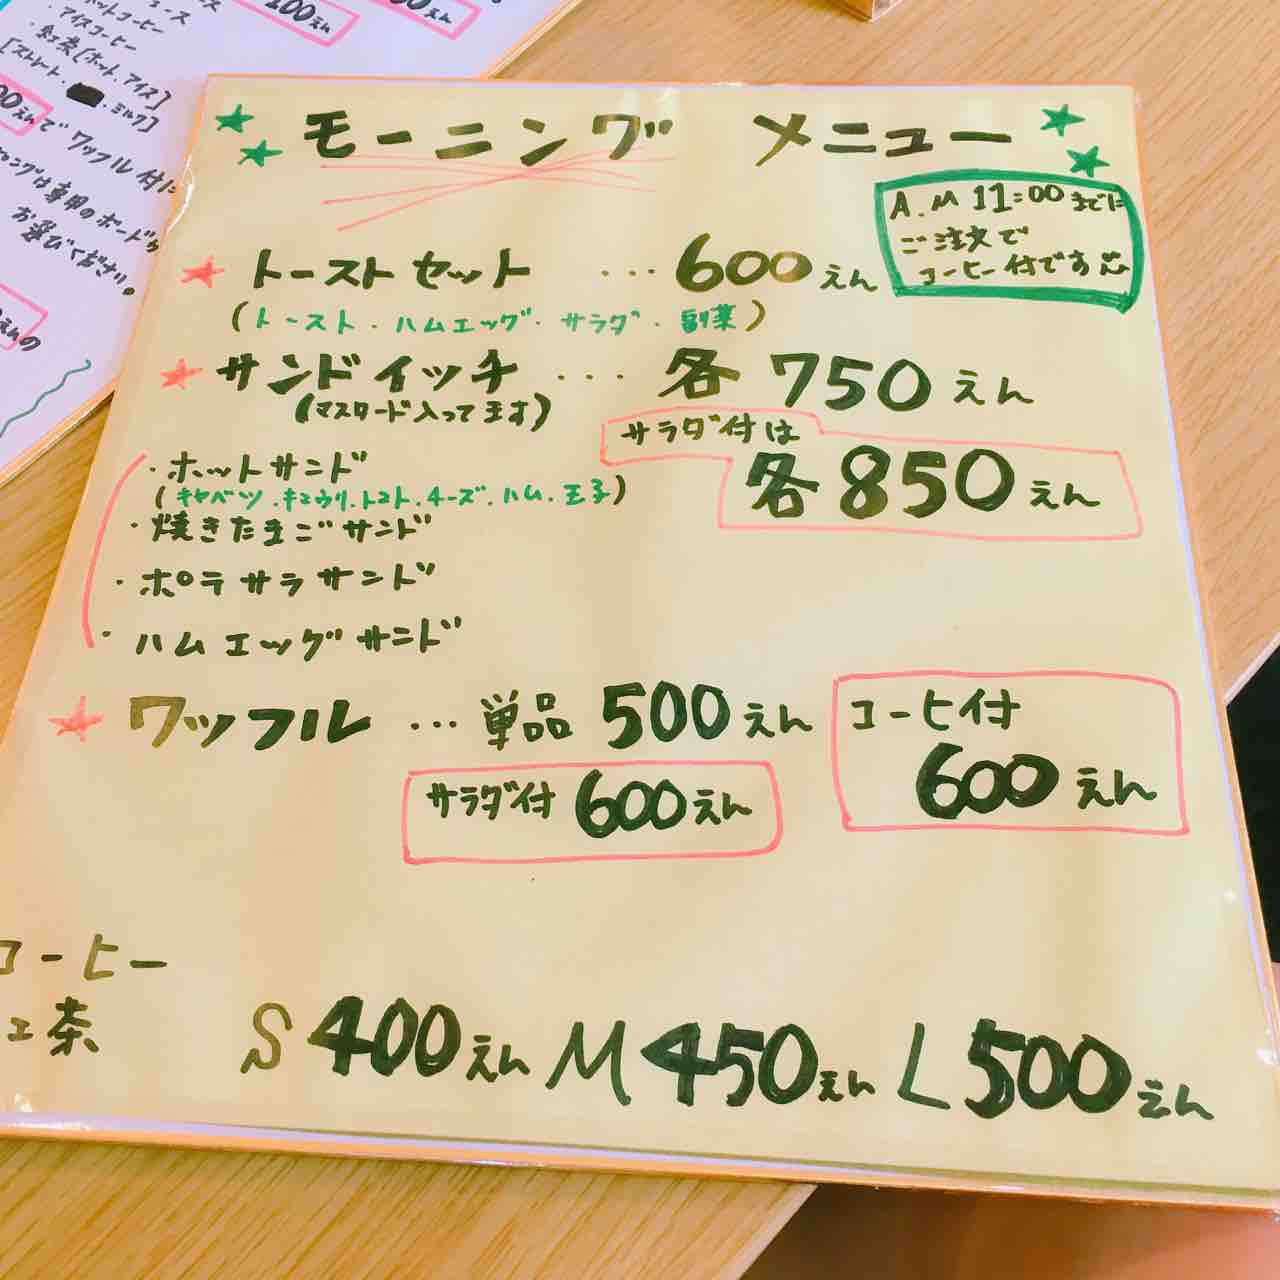 100えん
ホットコーヒー
・アイスコーヒー
・紅茶(ホット、アイス)
[ストレート・ ・ミルク]
00えんでワッフル付に
は専用のボードから
お選びください。
えんの
モーニング メニュー
A.M 11:00までに
ご注文で
コーヒー付です
トーストセット … 600えん
(トースト・ハムエッグ・サラダ・副菜)
サンドイッチ … 各750えん
(マスタード入ってます)
サラダ付は
各850えん
・ホットサンド
(キャベツ・キュウリ・トマト・チーズ・ハム・玉子)
・焼きたまごサンド
・ポテサラサンド
・ハムエッグサンド
ワッフル … 単品 500えん
コーヒー付
600えん
サラダ付 600えん
コーヒー
紅茶
S 400えん M 450えん L 500えん